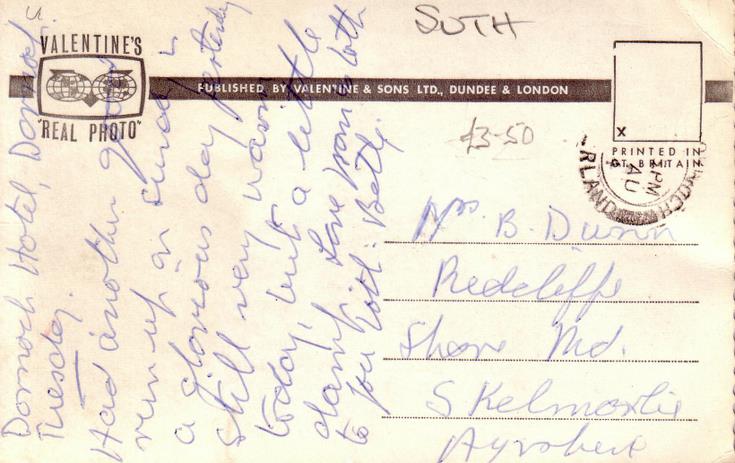 SUTH
VALENTINE'S
"REAL PHOTO"
PUBLISHED BY VALENTINE & SONS LTD., DUNDEE & LONDON
£3-50
X
PRINTED IN
GT. BRITAIN
PM
AU
RLAND
Dornoch Hotel, Dornoch.
Tuesday.
Had another good
run up on Sunday &
a glorious day yesterday
still very warm
today, but a little
damp. Love from both
to you both. Betty.
Mrs B. Dunn
Redcliffe
Shore Rd.
Skelmorlie
Ayrshire